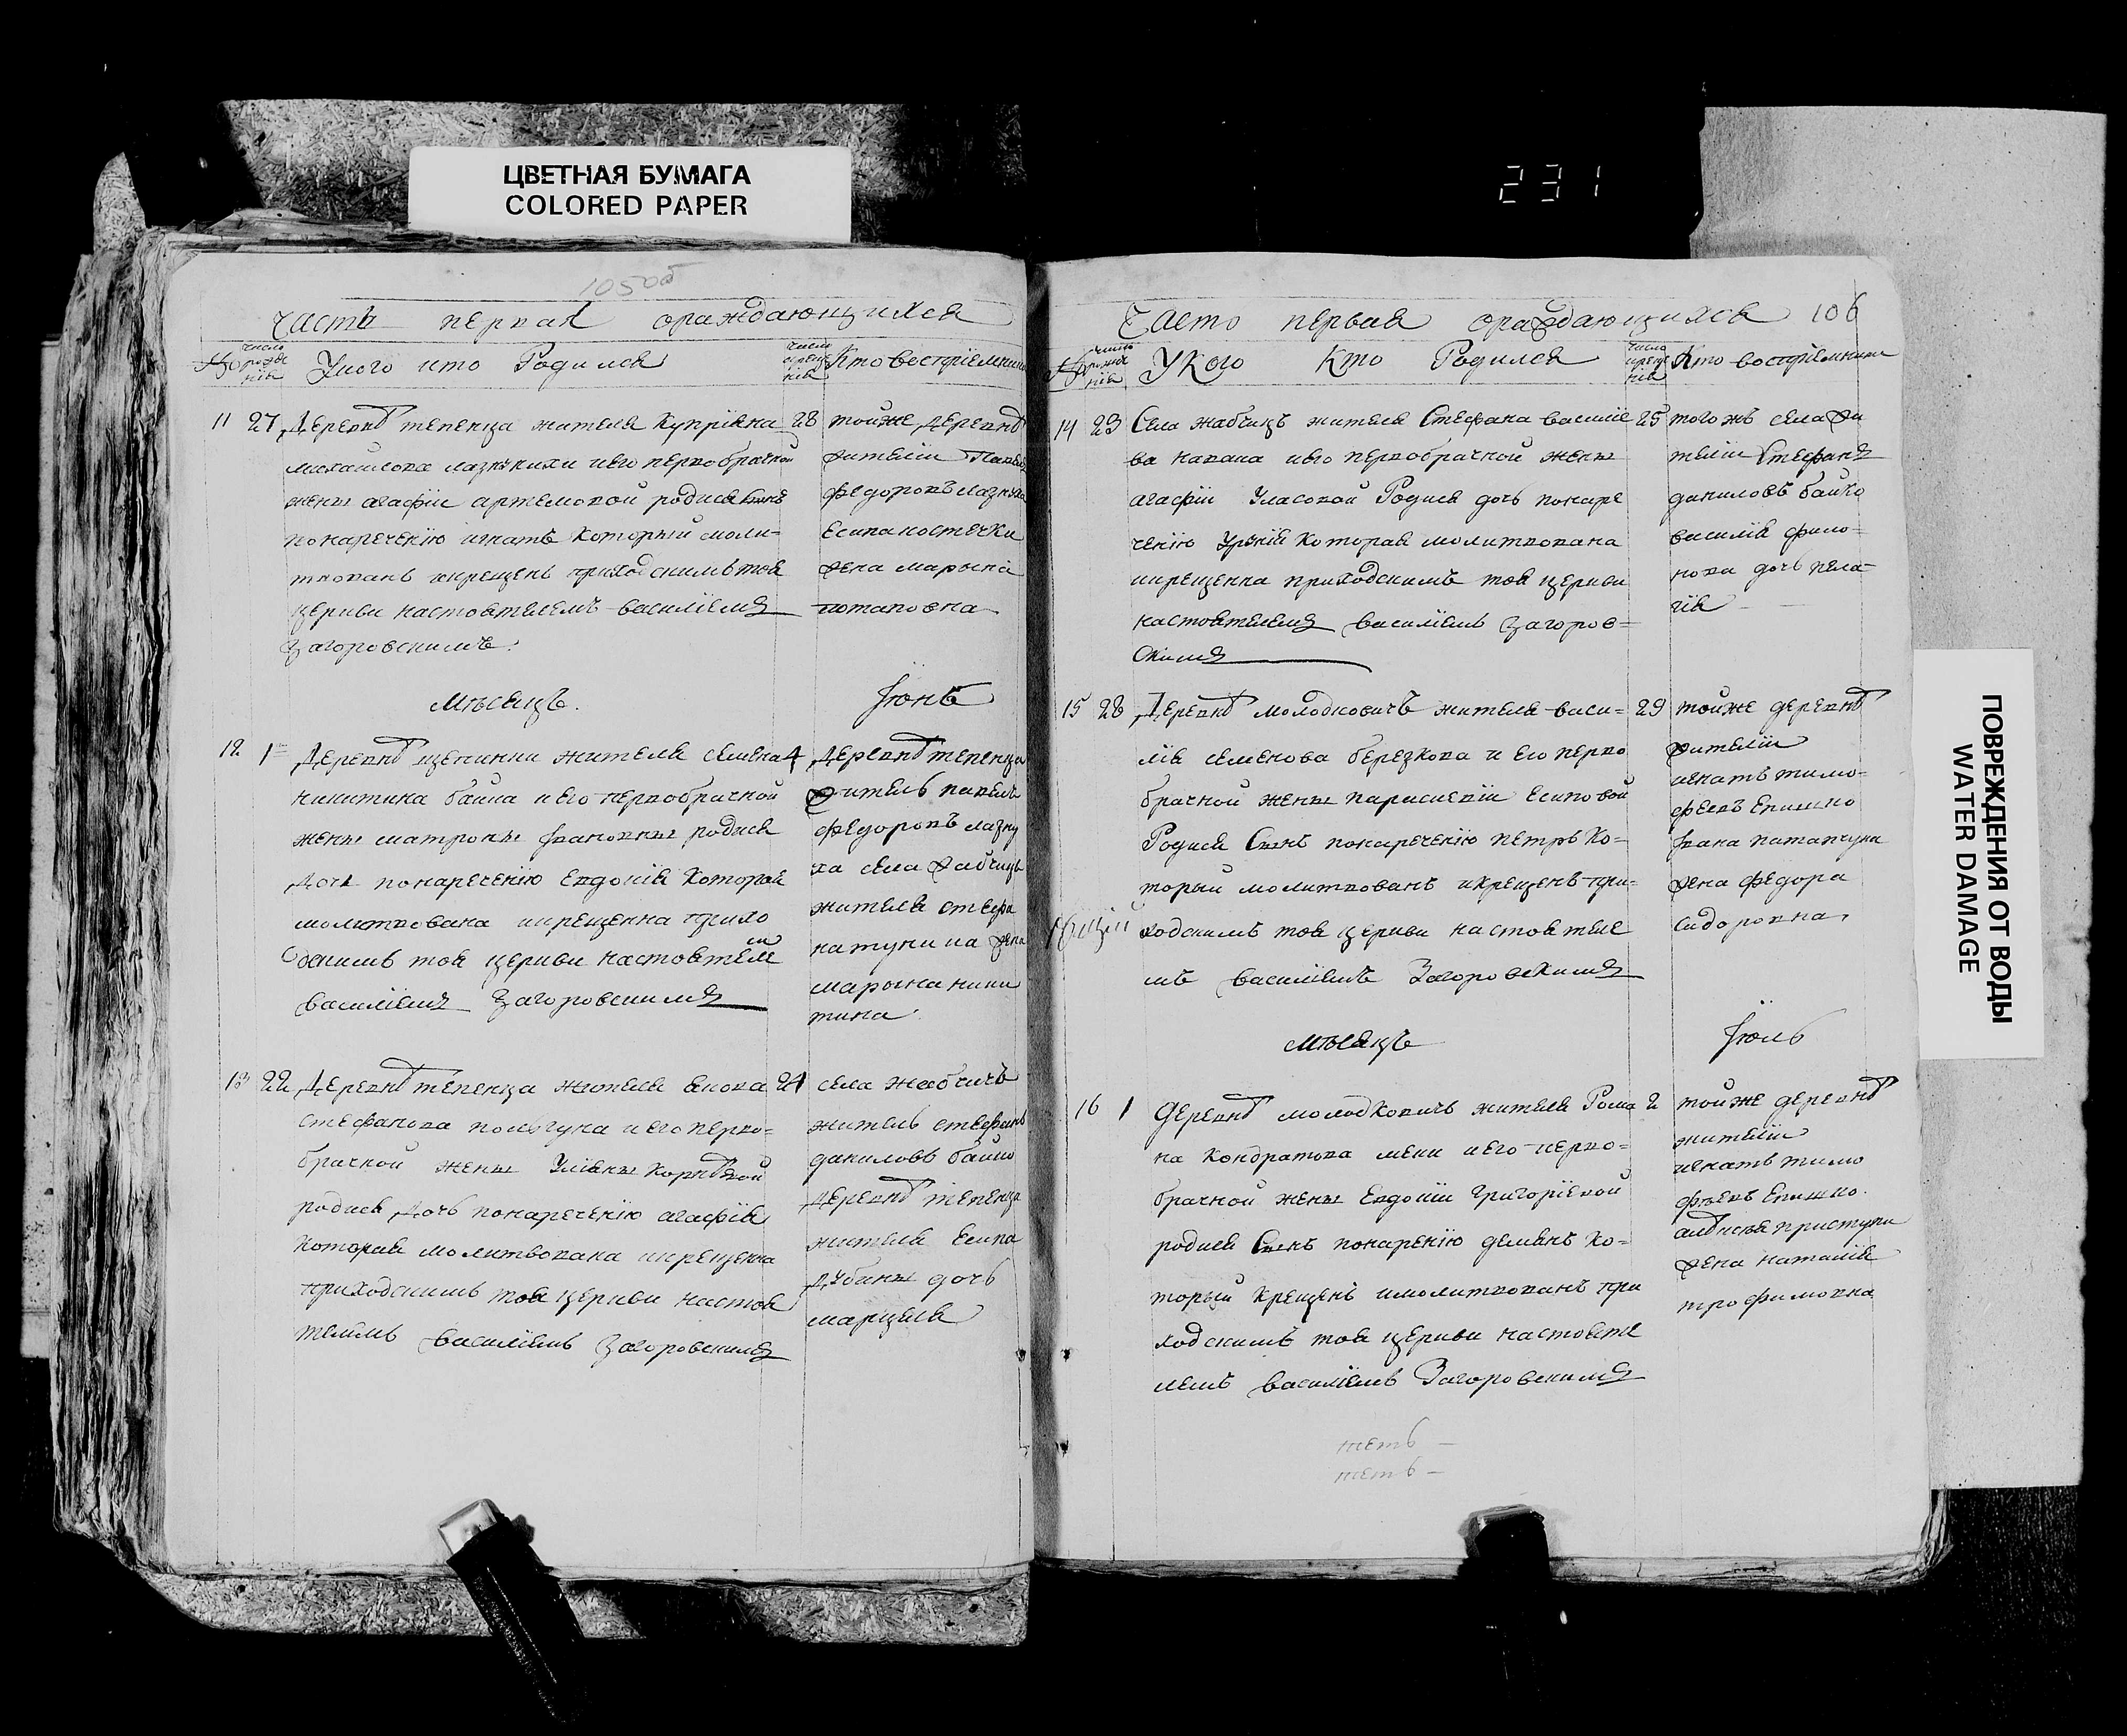 ЦВЕТНАЯ БУМАГА
COLORED PAPER
231
105об
Часть первая ораждающихся
число рожде нія
Укого кто Родился
число креще нія
Кто восприемники
11 27 Деревнѣ тепенца жителя Купріяна
михаилова лазукихи иего первобрачной
жены агафіи артемовой родися Сынъ
понареченію игнатъ Который моли-
твованъ икрещенъ приходскимъ тоя
церкви настоятелемъ василіемъ
Загоровскимъ.
28 тойже Деревнѣ
жители Павелъ
федоровъ
Есипа костечки
жена марына
потаповна
Мѣсяцъ. Іюнь
12 1 Деревнѣ щепинки жителя семена
никитина баина иего первобрачной
жены матроны Ивановны родися
Дочь понареченію Евдокія Которая
молитвована икрещенна прихо
дскимъ тоя церкви настоятелем
василіемъ Загоровскимъ
4 Деревнѣ тепенца
житель павелъ
федоровъ лазну
ха села жабчицъ
жителя стефа
на жена
марына ники
тина
13 22 Деревнѣ тепенца жителя якова
стефанова иего перво-
брачной жены Уліяны Корнѣевой
родися Дочь понареченію агафія
Которая молитвована икрещенна
приходскимъ тоя церкви настоя
телемъ василіемъ Загоровскимъ
24 села жабчичъ
житель стефанъ
даниловъ байко
Деревнѣ тепенца
жителя Есипа
дубины дочь
марцеля
Часть первая ораждающихся 106
число рожде нія
Укого Кто Родился
число креще нія
Кто восприемники
14 23 Села жабчицъ жителя Стефана василіе
ва кавана иего первобрачной жены
агафіи Уласовой Родися дочь понаре
ченію Которая молитвована
икрещенна приходскимъ тоя церкви
настоятелемъ василіемъ Загоров-
скимъ
25 того жъ села жи
тели Стефанъ
даниловъ байко
василія фило-
нова дочь пела-
гія
15 28 Деревнѣ молодковичъ жителя васи-
лія семенова березкова и его перво
брачной жены параскевіи Есиповой
Родися Сынъ понареченію петръ Ко-
торый молитвованъ икрещенъ при-
ходскимъ тоя церкви настояте
мъ василіемъ Загоровскимъ
29 тойже деревнѣ
жители
игнатъ тимо-
феевъ Епишко
Ивана патапчука
жена федора
сидоровна
мѣсяцъ Іюль
16 1 Деревнѣ молодковичъ жителя Рома
на Кондратова иего перво-
брачной жены Евдокіи Григоріевой
родися Сынъ понаренію демянъ Ко-
торый Крещенъ имолитвованъ при
ходскимъ тоя церкви настояте
лемъ василіемъ Загоровскимъ
2 тойже деревнѣ
жители
игнатъ тимо
фѣевъ Епишко.
приступи
жена наталія
трофимовна
ПОВРЕЖДЕНИЯ ОТ ВОДЫ
WATER DAMAGE